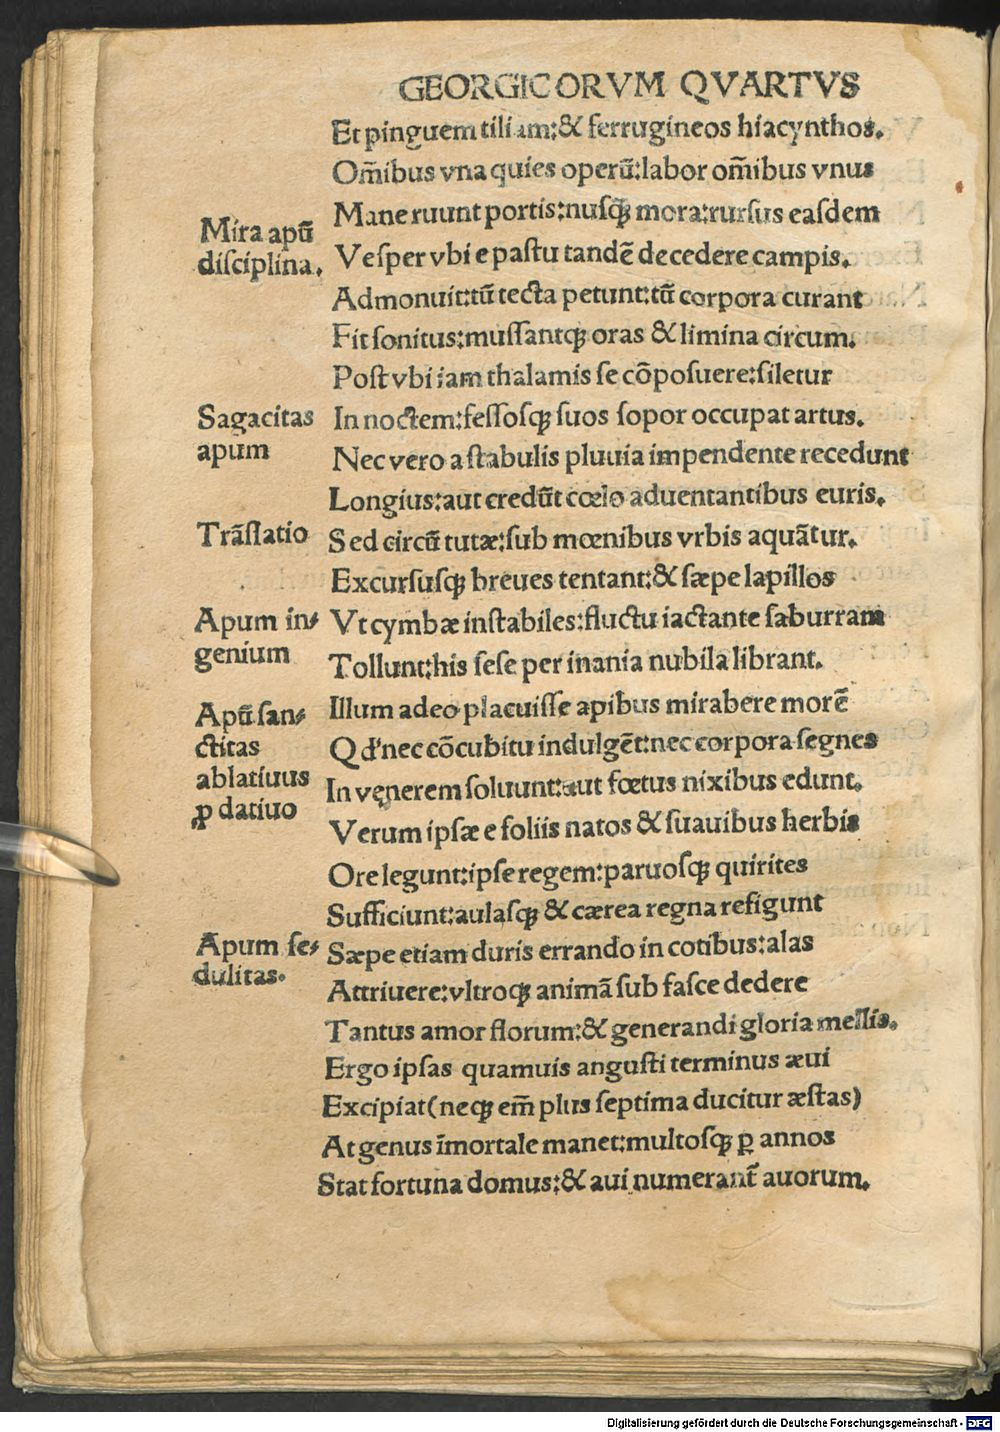 GEORGICORVM QVARTVS
Et pinguem tiliam:& ferrugineos hiacynthos.
Om̃ibus vna quies operũ:labor om̃ibus vnus
Mane ruunt portis:nusꝙ̃ mora:rursus easdem
Mira apũ
disciplina.
Vesper vbi e pastu tandẽ decedere campis.
Admonuit:tũ tecta petunt:tũ corpora curant
Fit sonitus:mussantqꝫ oras & limina circum.
Post vbi iam thalamis se cõposuere:siletur
Sagacitas
apum
In noctem:fessosqꝫ suos sopor occupat artus.
Nec vero a stabulis pluuia impendente recedunt
Longius:aut credũt cœlo aduentantibus euris.
Trãslatio
Sed circũ tutæ:sub mœnibus vrbis aquãtur.
Excursusqꝫ breues tentant:& sæpe lapillos
Apum in⸗
genium
Vt cymbæ instabiles:fluctu iactante saburram
Tollunt:his sese per inania nubila librant.
Apũ san⸗
ctitas
ablatiuus
ꝓ datiuo
Illum adeo placuisse apibus mirabere morẽ
Qd' nec cõcubitu indulgẽt:nec corpora segnes
In vęnerem soluunt:aut fœtus nixibus edunt.
Verum ipsæ e foliis natos & suauibus herbis
Ore legunt:ipse regem:paruosqꝫ quirites
Sufficiunt:aulasqꝫ & cærea regna refigunt
Apum se⸗
dulitas.
Sæpe etiam duris errando in cotibus:alas
Attriuere:vltroqꝫ animã sub fasce dedere
Tantus amor florum:& generandi gloria mellis.
Ergo ipsas quamuis angusti terminus æui
Excipiat(neqꝫ em̃ plus septima ducitur æstas)
At genus ĩmortale manet:multosqꝫ ꝑ annos
Stat fortuna domus:& aui numerant̃ auorum.
Digitalisierung gefördert durch die Deutsche Forschungsgemeinschaft - DFG